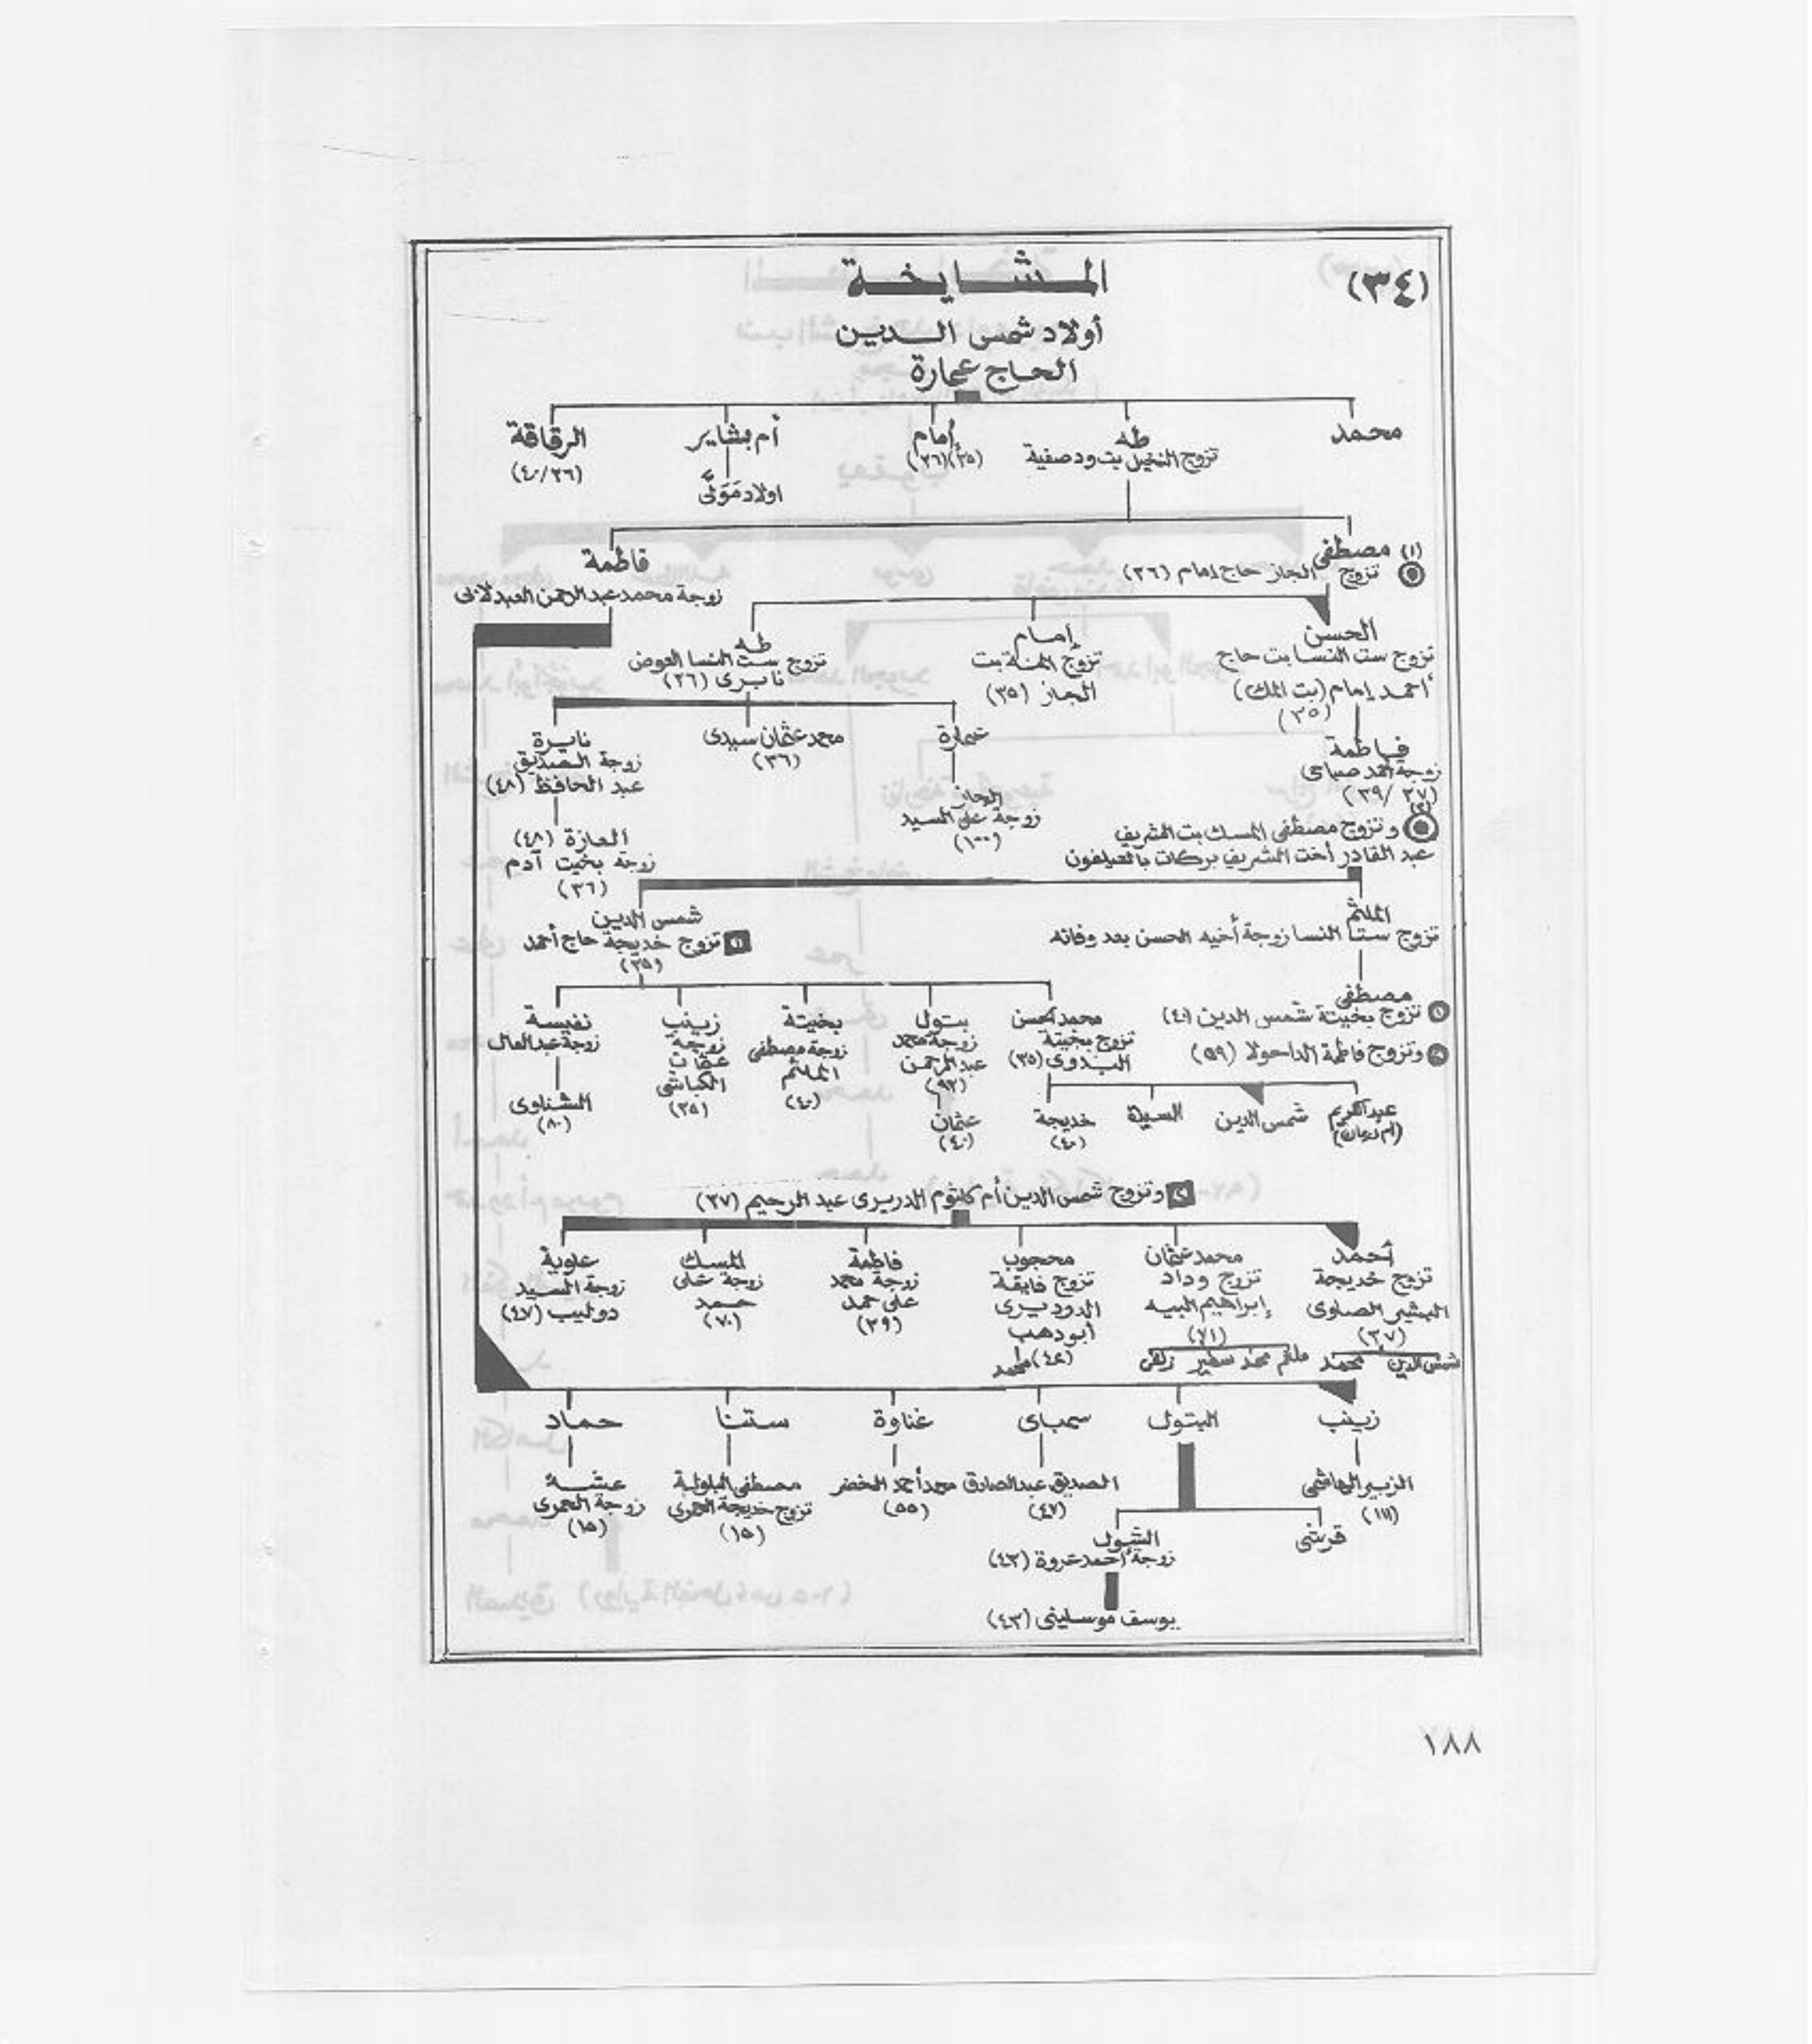 (٣٤)
المشايخة
أولاد شمس الدين
الحاج عمارة
محمد
طه
تزوج النخيل بت ود صفية
إمام
(٣٥)(٣٦)
أم بشاير
اولاد مَوَلَّى
الرقاقة
(٤٠/٣٦)
(١) مصطفى
تزوج الجاز حاج إمام (٣٦)
فاطمة
زوجة محمد عبد الرحمن العبدلابى
الحسن
تزوج ست النسا بت حاج
أحمد إمام (بت الملك)
(٣٥)
فاطمة
زوجة أحمد صباحى
(٣٩/٣٧)
إمام
تزوج المنة بت
الجاز (٣٥)
طه
تزوج ست النسا العوض
نايرى (٣٦)
عمارة
الجاز
زوجة على السيد
(١٠٠)
محمد عثمان سيدى
(٣٦)
نايرة
زوجة الصديق
عبد الحافظ (٤٨)
العازة (٤٨)
زوجة بخيت آدم
(٣٦)
(٢) وتزوج مصطفى المسك بت الشريف
عبد القادر أخت الشريف بركات بالعيلفون
الملثم
تزوج ستا النسا زوجة أخيه الحسن بعد وفاته
شمس الدين
١ تزوج خديجة حاج أحمد
(٣٥)
مصطفى
١ تزوج بخيتة شمس الدين (٤٠)
٢ وتزوج فاطمة الداحولا (٥٩)
عبد الكريم
(أم درمان)
شمس الدين
السيدة
خديجة
(٤٠)
محمد الحسن
تزوج بخيتة
البدوى (٣٥)
بتول
زوجة محمد
عبد الرحمن
(٩٢)
عثمان
(٤٠)
بخيتة
زوجة مصطفى
الملثم
(٤٠)
زينب
زوجة
عثمان
الكباشى
(٣٥)
نفيسة
زوجة عبد العال
الشناوى
(٨٠)
٢ وتزوج شمس الدين أم كلثوم الدريرى عبد الرحيم (٣٧)
أحمد
تزوج خديجة
البشير الصاوى
(٣٧)
شمس الدين محمد
محمد عثمان
تزوج وداد
إبراهيم البيه
(٧١)
ملثم محمد سفير
محجوب
تزوج فايقة
الدرديرى
أبو دهب
(٤٤) محمد
فاطمة
زوجة محمد
على حمد
(٣٩)
المسك
زوجة على
حمد
(٧٠)
علوية
زوجة السيد
دوليب (٤٧)
زينب
الزبير الهاشمى
(١١١)
البتول
قرشى
الشول
زوجة أحمد عروة (٤٣)
يوسف موسلينى (٤٣)
سمباى
الصديق عبد الصادق
(٤٧)
غناوة
محمد أحمد الخضر
(٥٥)
ستنا
مصطفى البلولة
تزوج خديجة العمرى
(١٥)
حماد
عشة
زوجة العمرى
(١٥)
١٨٨